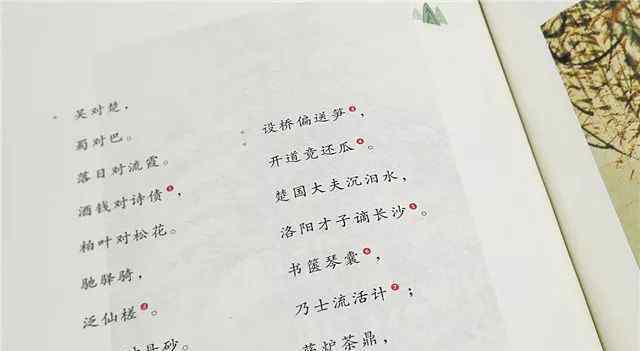 吴对楚，
蜀对巴。
落日对流霞。
酒钱对诗债❶，
柏叶对松花。
驰驿骑，
泛仙槎❷。
丹砂。
设桥偏送笋❸，
开道竞还瓜❹。
楚国大夫沉汨水，
洛阳才子谪长沙❺。
书箧琴囊❻，
乃士流活计❼；
炉茶鼎，